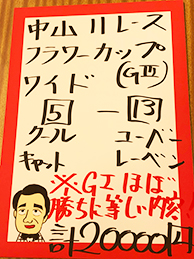 中山11レース
フラワーカップ
ワイド (GⅢ)
5 － 13
クール ユーベン
キャット レーベン
※GⅠほぼ
勝ちに等しい内容!
計20000円